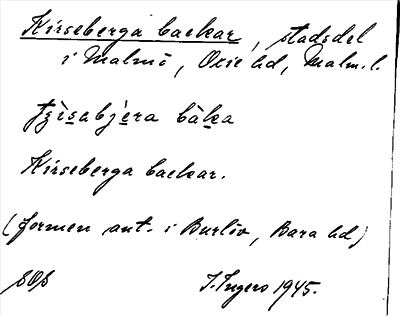 Kirseberga backar, stadsdel
i Malmö, Oxie hd, Malm. l.
tʒìsabjèra bàka
Kirseberga backar.
(formen ant. i Burlöv, Bara hd)
I. Ingers 1945.